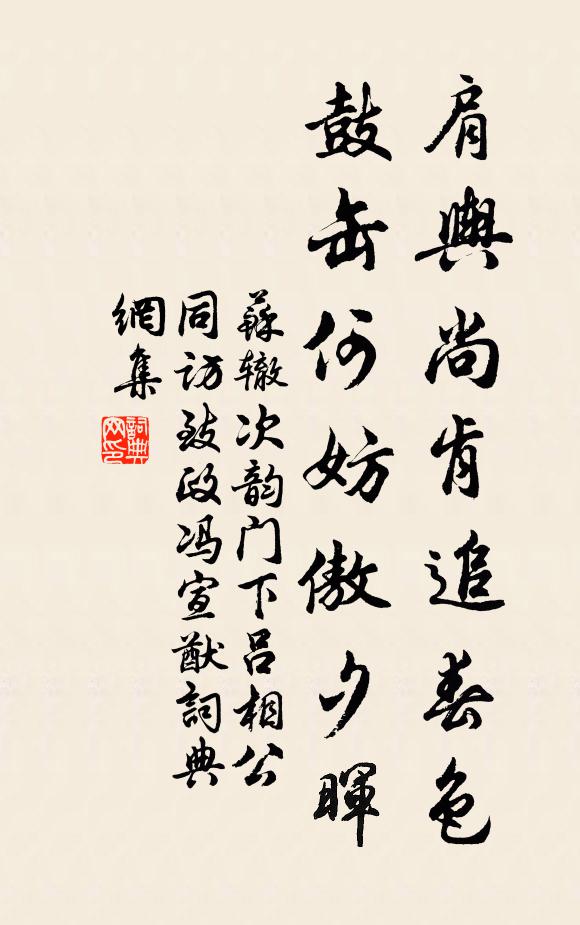 肩輿尚肯追春色
鼓缶何妨傲夕暉
蘇辙次韵门下吕相公
同访致政冯宣猷詞典
網集
詞典
网印